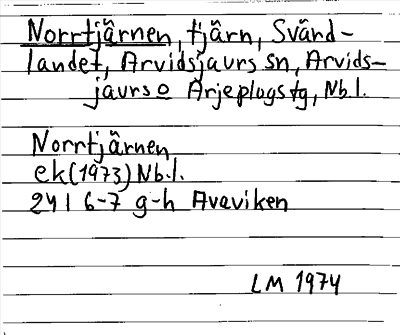 Norrtjärnen, tjärn, Svärd-
landet, Arvidsjaurs sn, Arvids-
jaurs o Arjeplogs tg, Nb.l.
Norrtjärnen
ek (1973) Nb.l.
24 I 6-7 g-h Avaviken
LM 1974